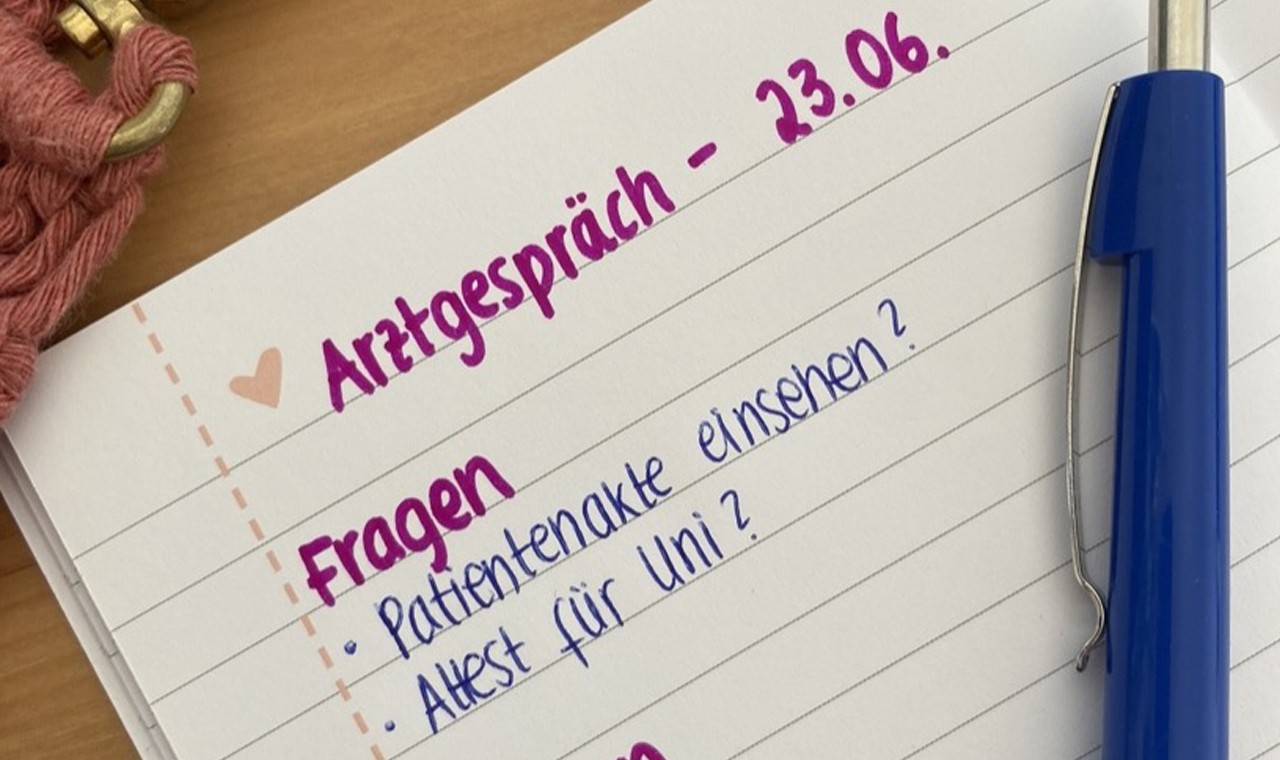 Arztgespräch - 23.06.
Fragen
• Patientenakte einsehen?
• Attest für Uni?